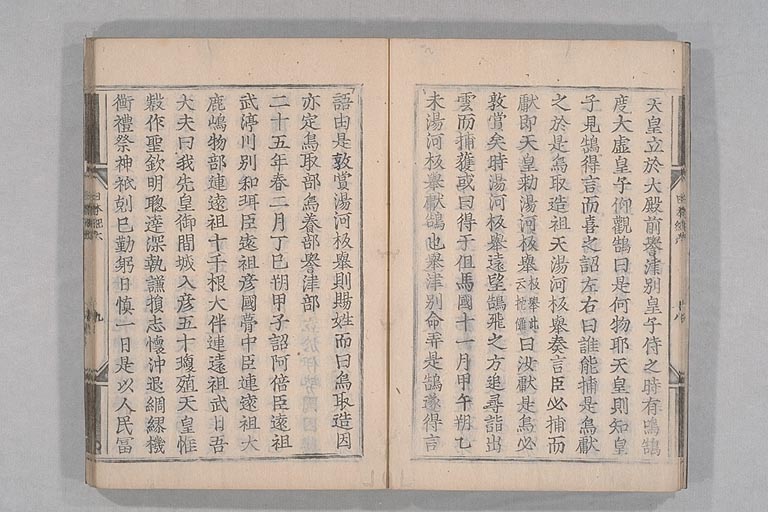 天皇立於大殿前譽津別皇子侍之時有鳴鵠
度大虛皇子仰觀鵠曰是何物耶天皇則知皇
子見鵠得言而喜之詔左右曰誰能捕是鳥獻
之於是鳥取造祖天湯河板擧奏言臣必捕而
獻即天皇勅湯河板擧板擧此云拕儺曰汝獻是鳥必
敦賞矣時湯河板擧遠望鵠飛之方追尋詣出
雲而捕獲或曰得于但馬國十一月甲午朔乙
未湯河板擧獻鵠也譽津別命弄是鵠遂得言
語由是敦賞湯河板擧則賜姓而曰鳥取造因
亦定鳥取部鳥養部譽津部
二十五年春二月丁巳朔甲子詔阿倍臣遠祖
武渟川別和珥臣遠祖彦國葺中臣連遠祖大
鹿嶋物部連遠祖十千根大伴連遠祖武日吾
大夫曰我先皇御間城入彦五十瓊殖天皇惟
叡作聖欽明聰達深執謙損志懷沖退綢繆機
衡禮祭神祇剋己勤躬日愼一日是以人民冨